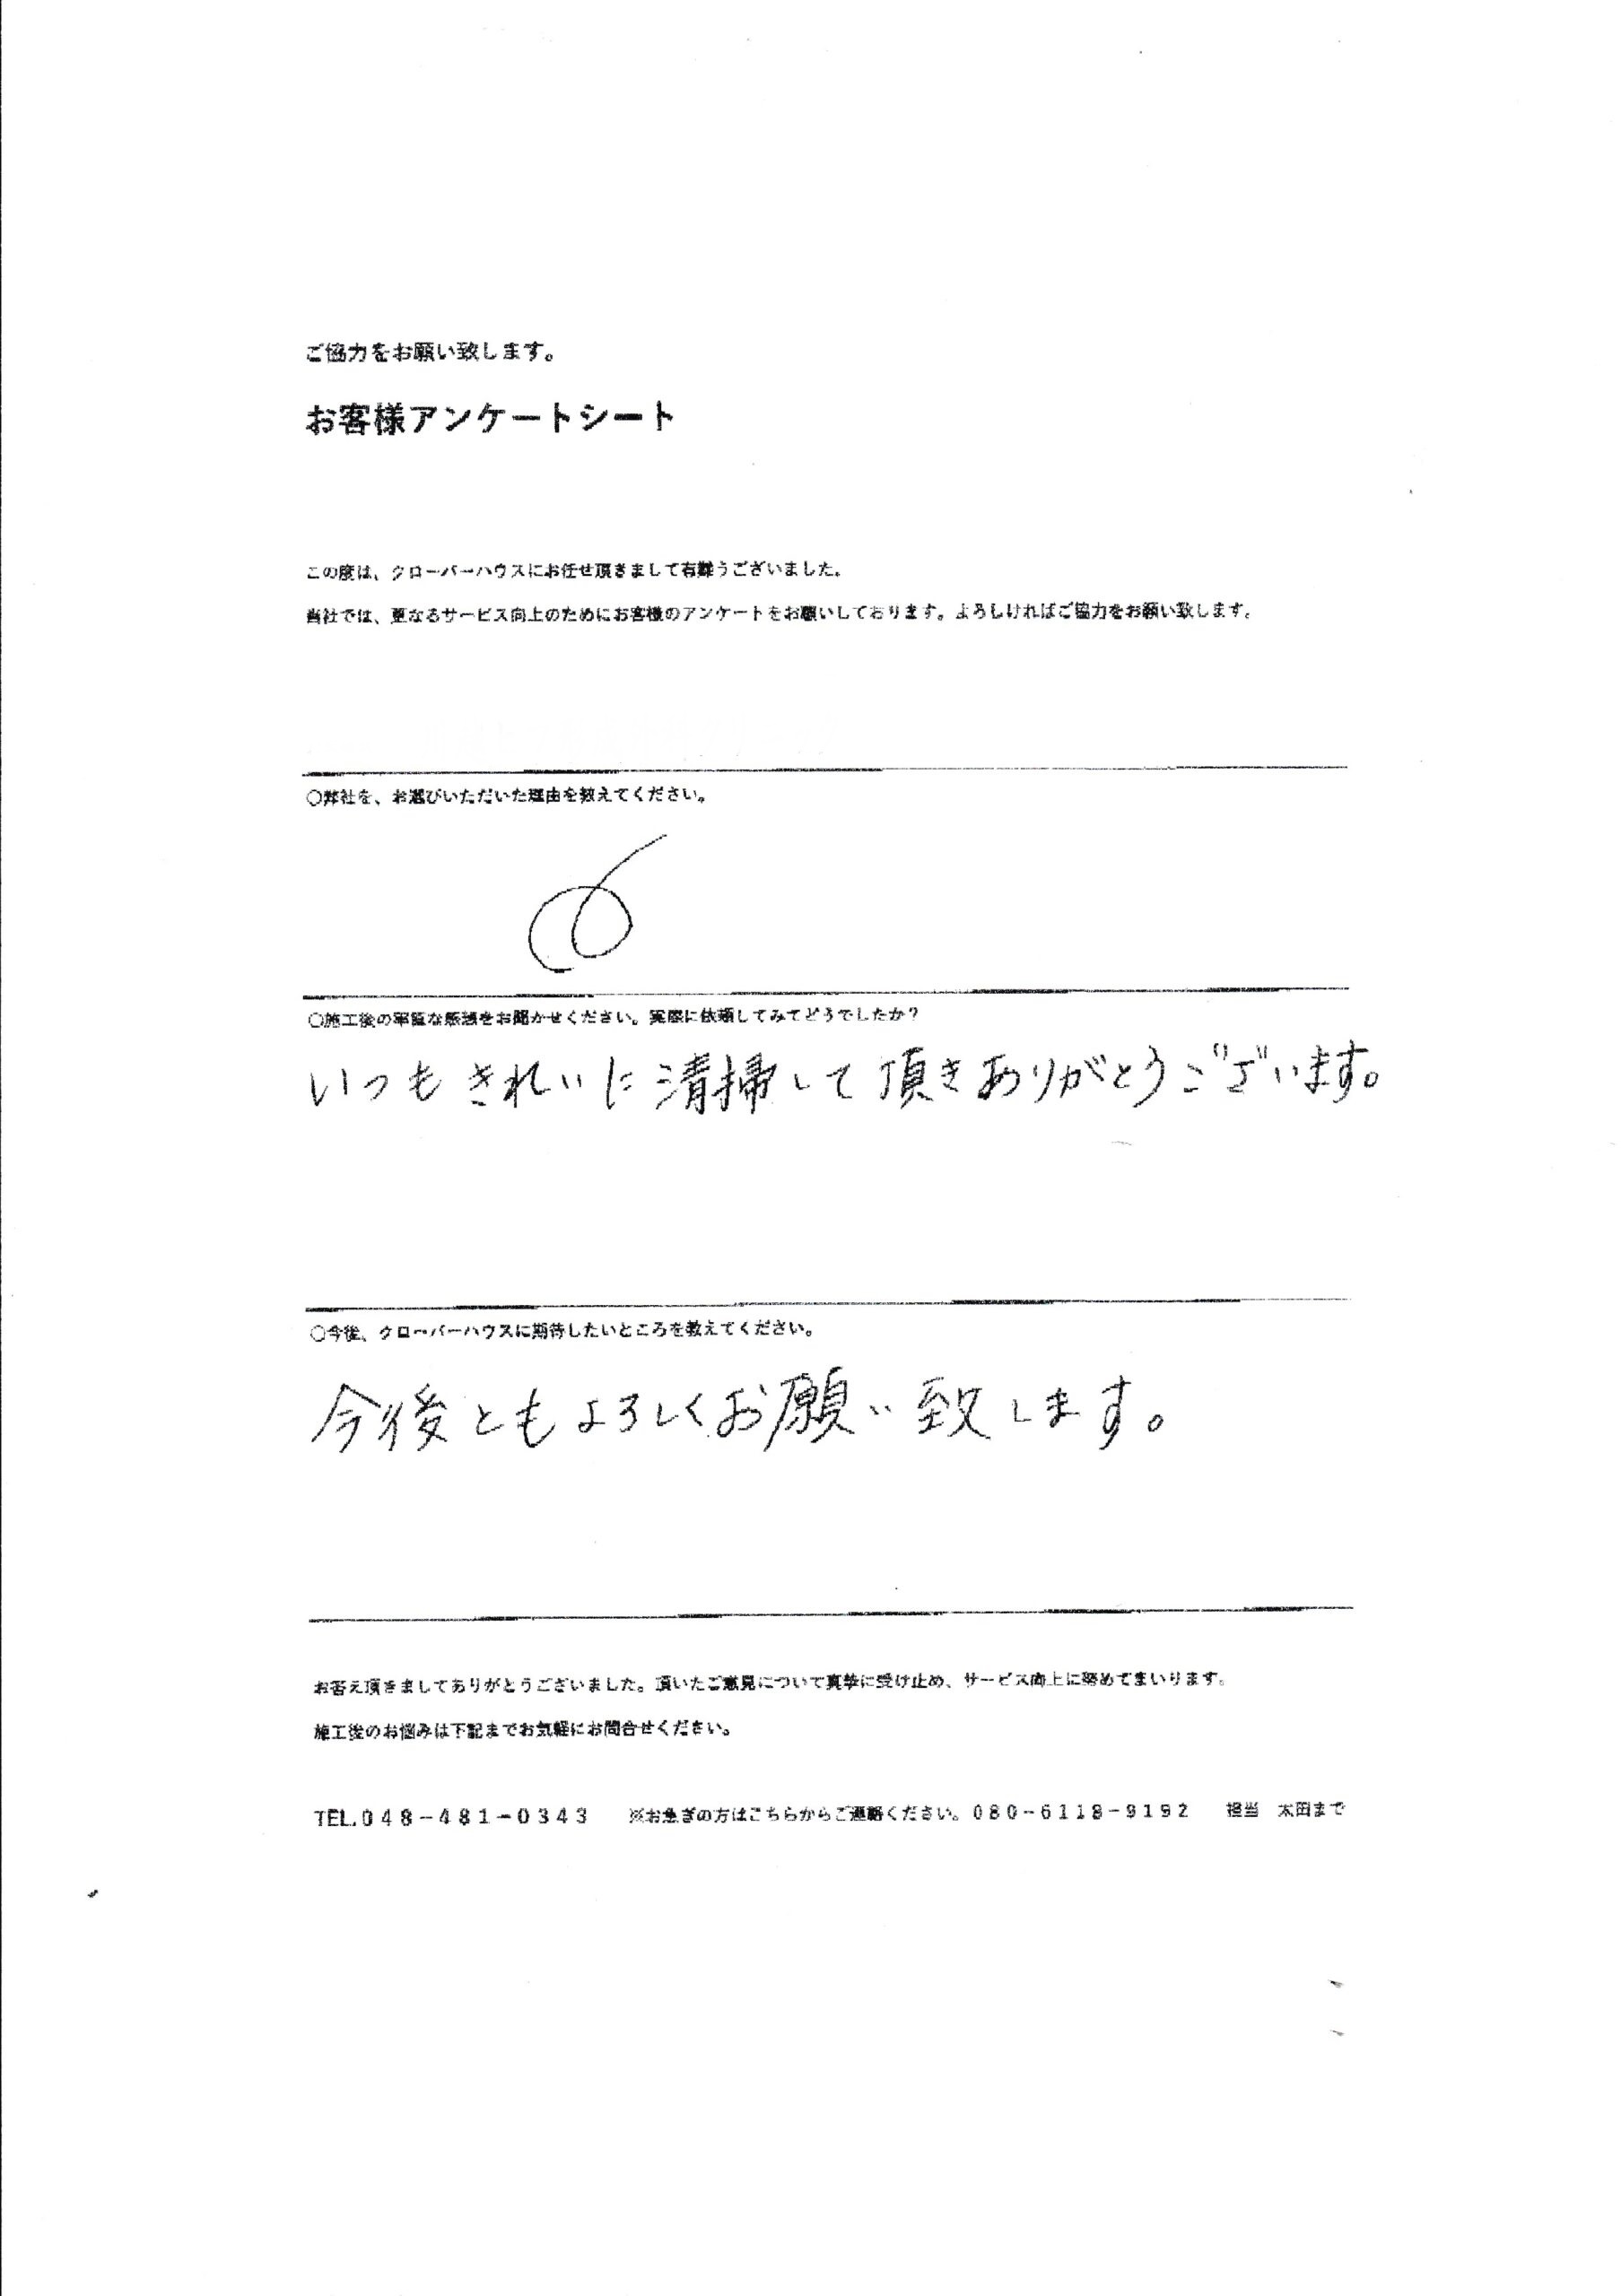 ご協力をお願い致します。
お客様アンケートシート
この度は、クローバーハウスにお任せ頂きまして有難うございました。
当社では、更なるサービス向上のためにお客様のアンケートをお願いしております。よろしければご協力をお願い致します。
○弊社を、お選びいただいた理由を教えてください。
○施工後の率直な感想をお聞かせください。実際に依頼してみてどうでしたか？
いつもきれいに清掃して頂きありがとうございます。
○今後、クローバーハウスに期待したいところを教えてください。
今後ともよろしくお願い致します。
お答え頂きましてありがとうございました。頂いたご意見について真摯に受け止め、サービス向上に努めてまいります。
施工後のお悩みは下記までお気軽にお問合せください。
TEL.048-481-0343　※お急ぎの方はこちらからご連絡ください。080-6118-9192　担当　太田まで